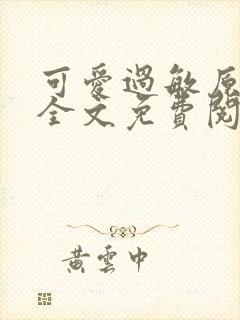 可愛過敏原
全文免費閱
黃雲中